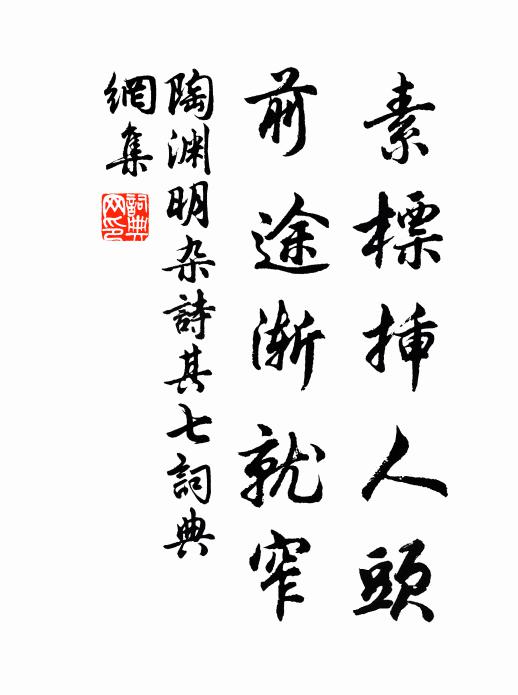 素標插人頭
前途漸就窄
陶淵明杂詩其七詞典
網集
詞典
网印